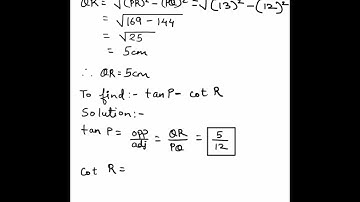 QR = √(PR)² - (PQ)² = √(13)² - (12)²
= √169 - 144
= √25
= 5cm
∴ QR = 5cm
To find:- tan P - cot R
Solution:-
tan P = opp/adj = QR/PQ = 5/12
cot R =